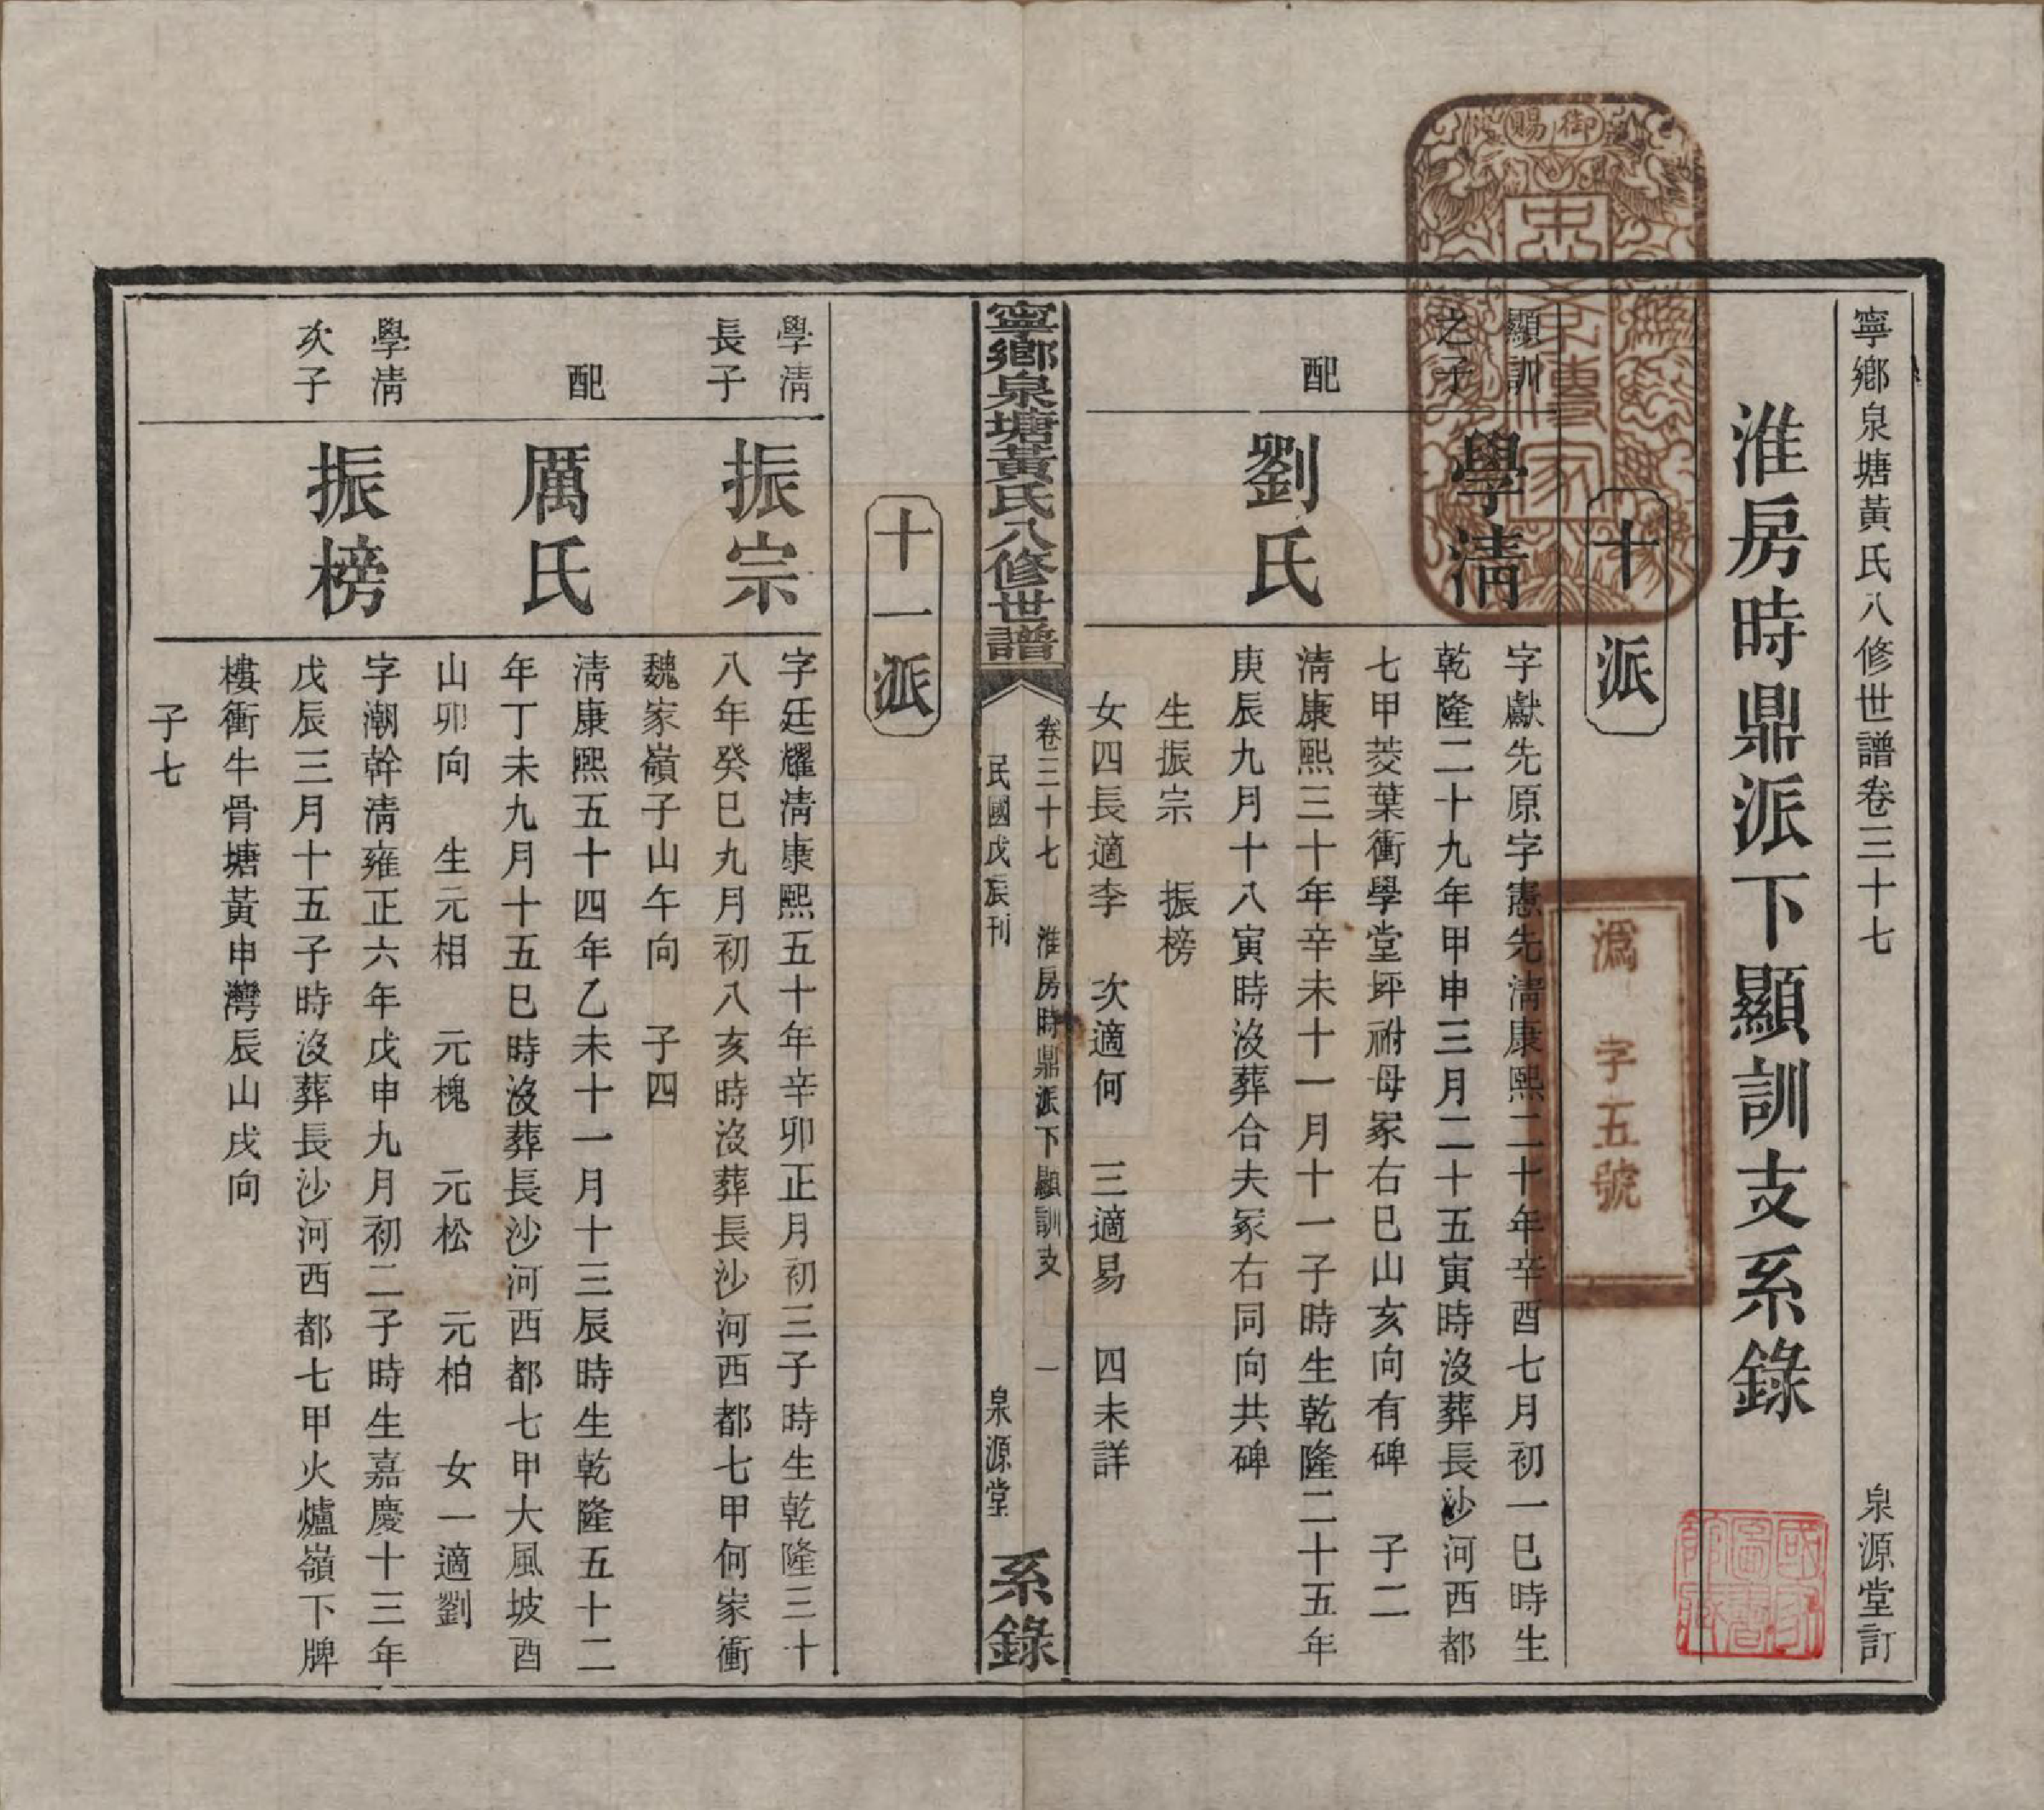 寧鄉泉塘黃氏八修世譜卷三十七
泉源堂訂
淮房時鼎派下顯訓支系錄
十派
顯訓
之子
學淸
字獻先原字憲先淸康熙二十年辛酉七月初一巳時生
乾隆二十九年甲申三月二十五寅時沒葬長沙河西都
七甲菱葉衝學堂坪祔母冢右巳山亥向有碑 子二
配
劉氏
淸康熙三十年辛未十一月十一子時生乾隆二十五年
庚辰九月十八寅時沒葬合夫冢右同向共碑
生振宗 振榜
女四長適李 次適何 三適易 四未詳
寧鄉泉塘黃氏八修世譜
卷三十七 淮房時鼎派下顯訓支 一
民國戊辰刊
泉源堂
系錄
十一派
學淸
長子
振宗
字廷耀淸康熙五十年辛卯正月初三子時生乾隆三十
八年癸巳九月初八亥時沒葬長沙河西都七甲何家衝
魏家嶺子山午向 子四
配
厲氏
淸康熙五十四年乙未十一月十三辰時生乾隆五十二
年丁未九月十五巳時沒葬長沙河西都七甲大風坡酉
山卯向 生元相 元槐 元松 元柏 女一適劉
學淸
次子
振榜
字潮幹淸雍正六年戊申九月初二子時生嘉慶十三年
戊辰三月十五子時沒葬長沙河西都七甲火爐嶺下牌
樓衝牛骨塘黃申灣辰山戌向
子七
御賜
忠孝傳家
溈字五號
國家圖書館藏